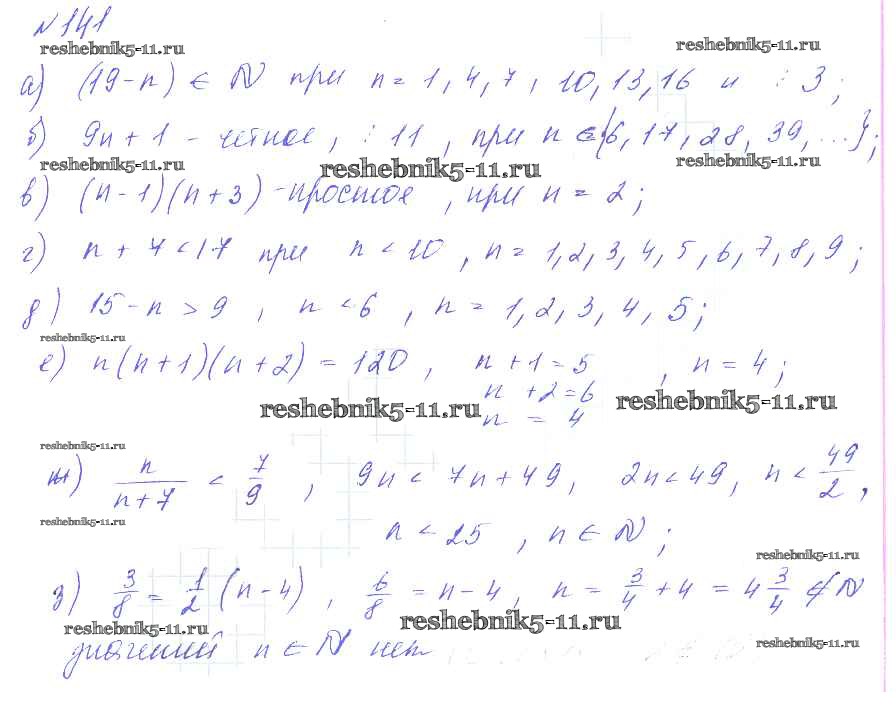 №141
reshebnik5-11.ru reshebnik5-11.ru
а) (19-n) ∈ N при n = 1, 4, 7, 10, 13, 16 и ⋮ 3;
б) 9n + 1 - четное, ⋮ 11, при n ∈ {6, 17, 28, 39, ...};
reshebnik5-11.ru reshebnik5-11.ru reshebnik5-11.ru
в) (n-1)(n+3) - простое, при n = 2;
г) n + 7 < 17 при n < 10, n = 1, 2, 3, 4, 5, 6, 7, 8, 9;
д) 15 - n > 9, n < 6, n = 1, 2, 3, 4, 5;
reshebnik5-11.ru
е) n(n+1)(n+2) = 120, n + 1 = 5, n = 4;
n + 2 = 6
reshebnik5-11.ru reshebnik5-11.ru
n = 4
reshebnik5-11.ru
ж) n/(n+7) < 7/9, 9n < 7n + 49, 2n < 49, n < 49/2,
reshebnik5-11.ru
n < 25, n ∈ N;
reshebnik5-11.ru
з) 3/8 = 1/2 (n-4), 6/8 = n - 4, n = 3/4 + 4 = 4 3/4 ∉ N
reshebnik5-11.ru reshebnik5-11.ru
значений n ∈ N нет
reshebnik5-11.ru